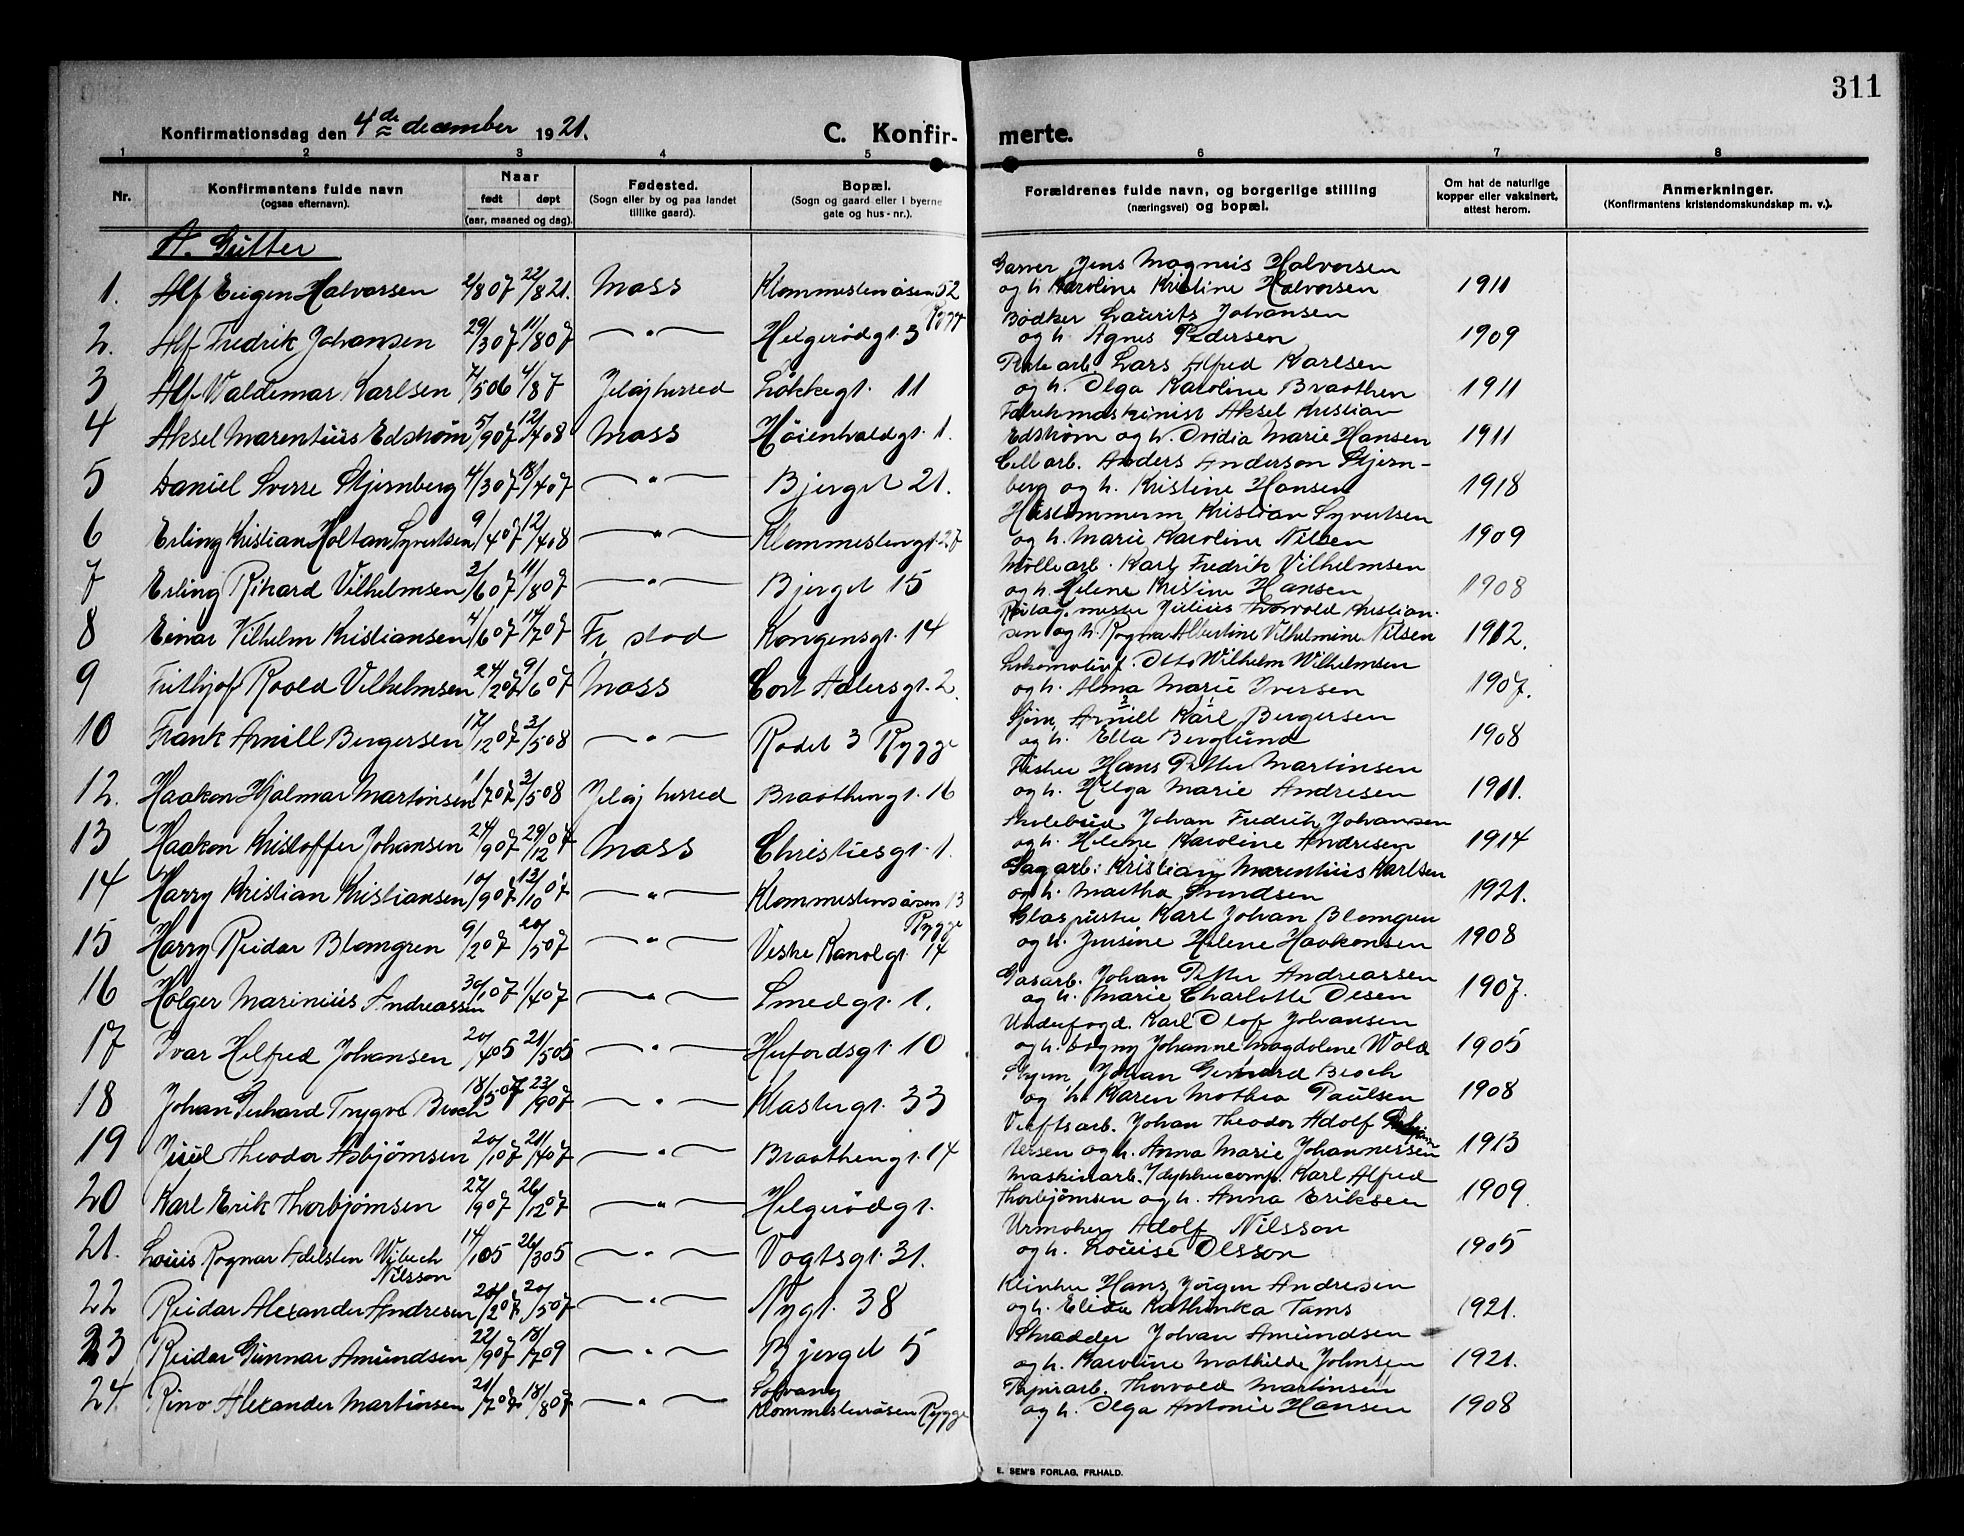 311
Konfirmationsdag den 4de december 1921.
C. Konfirmerte.
1 2 3 4 5 6 7 8
Nr.
Konfirmantens fulde navn
(ogsaa efternavn).
Naar
født døpt
(aar, maaned og dag).
Fødested.
(Sogn eller by og paa landet
tillike gaard).
Bopæl.
(Sogn og gaard eller i byerne
gate og hus-nr.).
Forældrenes fulde navn, og borgerlige stilling
(næringsvei) og bopæl.
Om hat de naturlige
kopper eller vaksinert,
attest herom.
Anmerkninger.
(Konfirmantens kristendomskundskap m. v.).
A. Gutter
Garver Jens Magnus Halvorsen
1. Alf Eugen Halvorsen 2/8 07 22/8 21. Moss Klommestensåsen 52 Rygge og h. Karoline Kristine Halvorsen 1911
Bødker Laurits Johansen
2. Alf Fredrik Johansen 29/3 07 11/8 07 — " — Helgerødgt. 3 og h. Agnes Pedersen 1909
Lars Alfred Karlsen
3 Alf Valdemar Karlsen 7/5 06 4/8 7 Jeløy herred Løkkegt. 11 og h. Olga Karoline Braathen 1911
Fabrikmaskinist Aksel Kristian
4 Aksel Marentius Edstrøm 5/9 07 12/4 08 Moss Høienhaldgt. 1. Edstrøm og h. Ovidia Marie Hansen 1911
Cell.arb. Anders Anderson Stjern-
5 Daniel Sverre Stjernberg 4/3 07 18/4 07 — " — Bjerget 21. berg og h. Kristine Hansen 1918
Hustømmerm Kristian Syvertsen
6 Erling Kristian Holtan Syvertsen 9/4 07 12/4 08 — " — Klommestengt. 27 og h. Marie Karoline Nilsen 1909
Møllearb. Karl Fredrik Vilhelmsen
7 Erling Rikard Vilhelmsen 2/6 07 11/8 07 — " — Bjerget 15 og h. Helene Kristine Hansen 1908
Julius Thorvald Kristian-
8 Einar Vilhelm Kristiansen 4/6 07 14/7 07 Fr. stad Kongensgt. 14 sen og h. Ragna Albertine Vilhelmine Nilsen 1912.
Lokomotivf. Otto Wilhelm Wilhelmsen
9 Frithjof Roald Vilhelmsen 24/2 07 9/6 07 Moss Cort Adlersgt. 2. og h. Alma Marie Iversen 1907.
Sjøm. Arnill Karl Bergersen
10 Frank Arnill Bergersen 17/12 07 3/5 08 — " — Rødet 3 Rygge og h. Ella Berglund 1908
Fisker Hans Petter Martinsen
12. Haakon Hjalmar Martinsen 1/7 07 3/5 08 Jeløy herred Braathengt. 16 og h. Helga Marie Andresen 1911.
Skolebud Johan Fredrik Johansen
13 Haakon Kristoffer Johansen 24/9 07 29/12 07 Moss Christiesgt. 1. og h. Helene Karoline Andresen 1914
Sagarb. Kristian Marentius Karlsen
14 Harry Kristian Kristiansen 10/9 07 13/10 07 — " — Klommestensåsen 13 Rygge og h. Martha Svendsen 1921.
Glaspuster Karl Johan Blomgren
15 Harry Reidar Blomgren 9/2 07 20/5 07 — " — Vestre Kanalgt. 14 og h. Jensine Helene Haakonsen 1908
Gasarb. Johan Petter Andreassen
16 Holger Marinius Andreassen 30/1 07 1/4 07 — " — Smedgt. 1. og h. Marie Charlotte Olsen 1907.
Underfogd. Karl Olof Johansen
17 Ivar Helfred Johansen 20/4 05 21/5 05 — " — 10 og h. Dagny Johanne Magdalene Wold 1905
Johan Gerhard Bech
18 Johan Gerhard Trygve Bech 18/5 07 23/9 07 — " — Klostergt. 33 og h. Karen Mathea Paulsen 1908
Verftsarb. Johan Theodor Adolf
19 Juul Theodor Asbjørnsen 20/1 07 21/4 07 — " — Braathengt. 14 og h. Anna Marie Johannessen 1913
Maskinarb. Karl Alfred
20 Karl Erik Thorbjørnsen 27/9 07 26/12 07 — " — Helgerødgt. Thorbjørnsen og h. Anna Eriksen 1909.
Urmaker Adolf Nilsson
21. Louis Ragnar Adelsten Wibech Nilsson 14/1 05 26/3 05 — " — Vogtsgt. 31. og h. Louise Olsson 1905
Hans Jørgen Andresen
22 Reidar Alexander Andresen 24/2 07 20/5 07 — " — Nygt. 38 og h. Elida Kathinka Tams 1921.
Skrædder Johan Amundsen
23 Reidar Gunnar Amundsen 22/9 07 18/7 09 — " — Bjerget 5 og h. Karoline Mathilde Johnsen 1921.
Papirarb. Thorvald Martinsen
24. Rino Alexander Martinsen 21/7 07 18/8 07 — " — Solvang Klommestensåsen Rygge og h. Olga Antonie Hansen 1908
E. SEM'S FORLAG, FR.HALD.